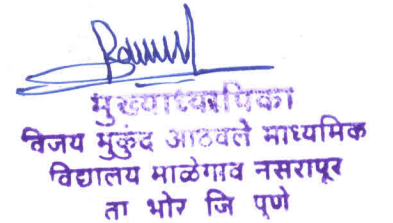 मुख्याध्यापिका
विजय मुकुंद आठवले माध्यमिक
विद्यालय माळेगाव नसरापूर
ता भोर जि पुणे